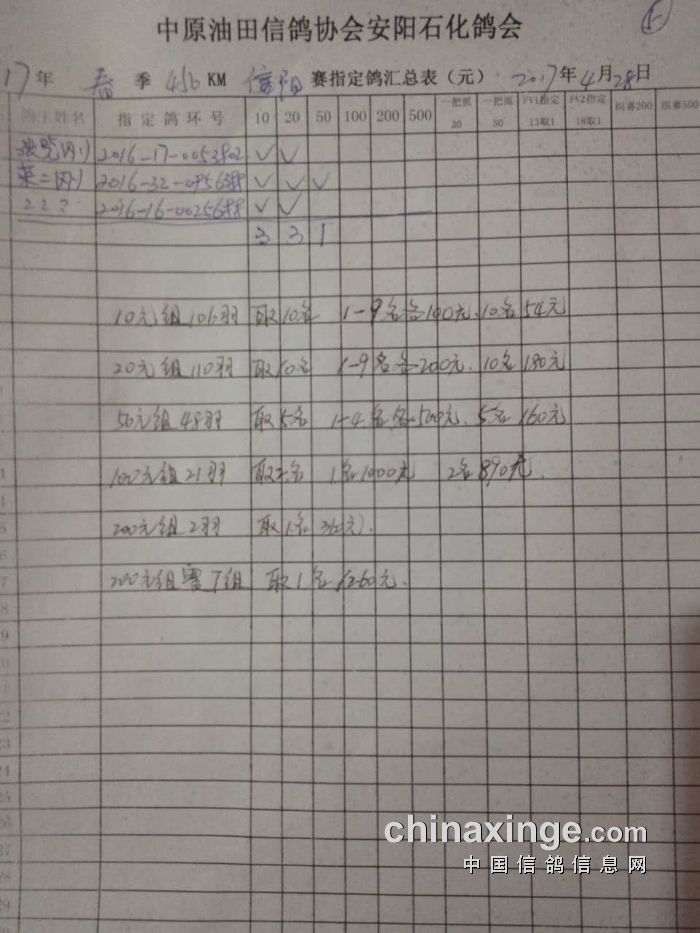 中原油田信鸽协会安阳石化鸽会
17年 春 季 456 KM 信阳 赛指定鸽汇总表（元） 2017年4月28日
鸽主姓名 指定鸽环号 10 20 50 100 200 500 一把抓30 一把抓50 PV1指定13取1 PV2指定18取1 组赛200 组赛500
2016-17-0053802 ✓ ✓
2016-32- ✓ ✓ ✓
2016-16-0025688 ✓ ✓
3 3 1
10元组106羽 取10名 1-9名各100元、10名54元
20元组110羽 取10名 1-9名各200元、10名180元
50元组48羽 取5名 1-4名各500元、5名160元
100元组21羽 取2名 1名1000元 2名890元.
200元组2羽 取1名360元).
200元组赛7组 取1名1260元.
chinaxinge.com
中国信鸽信息网